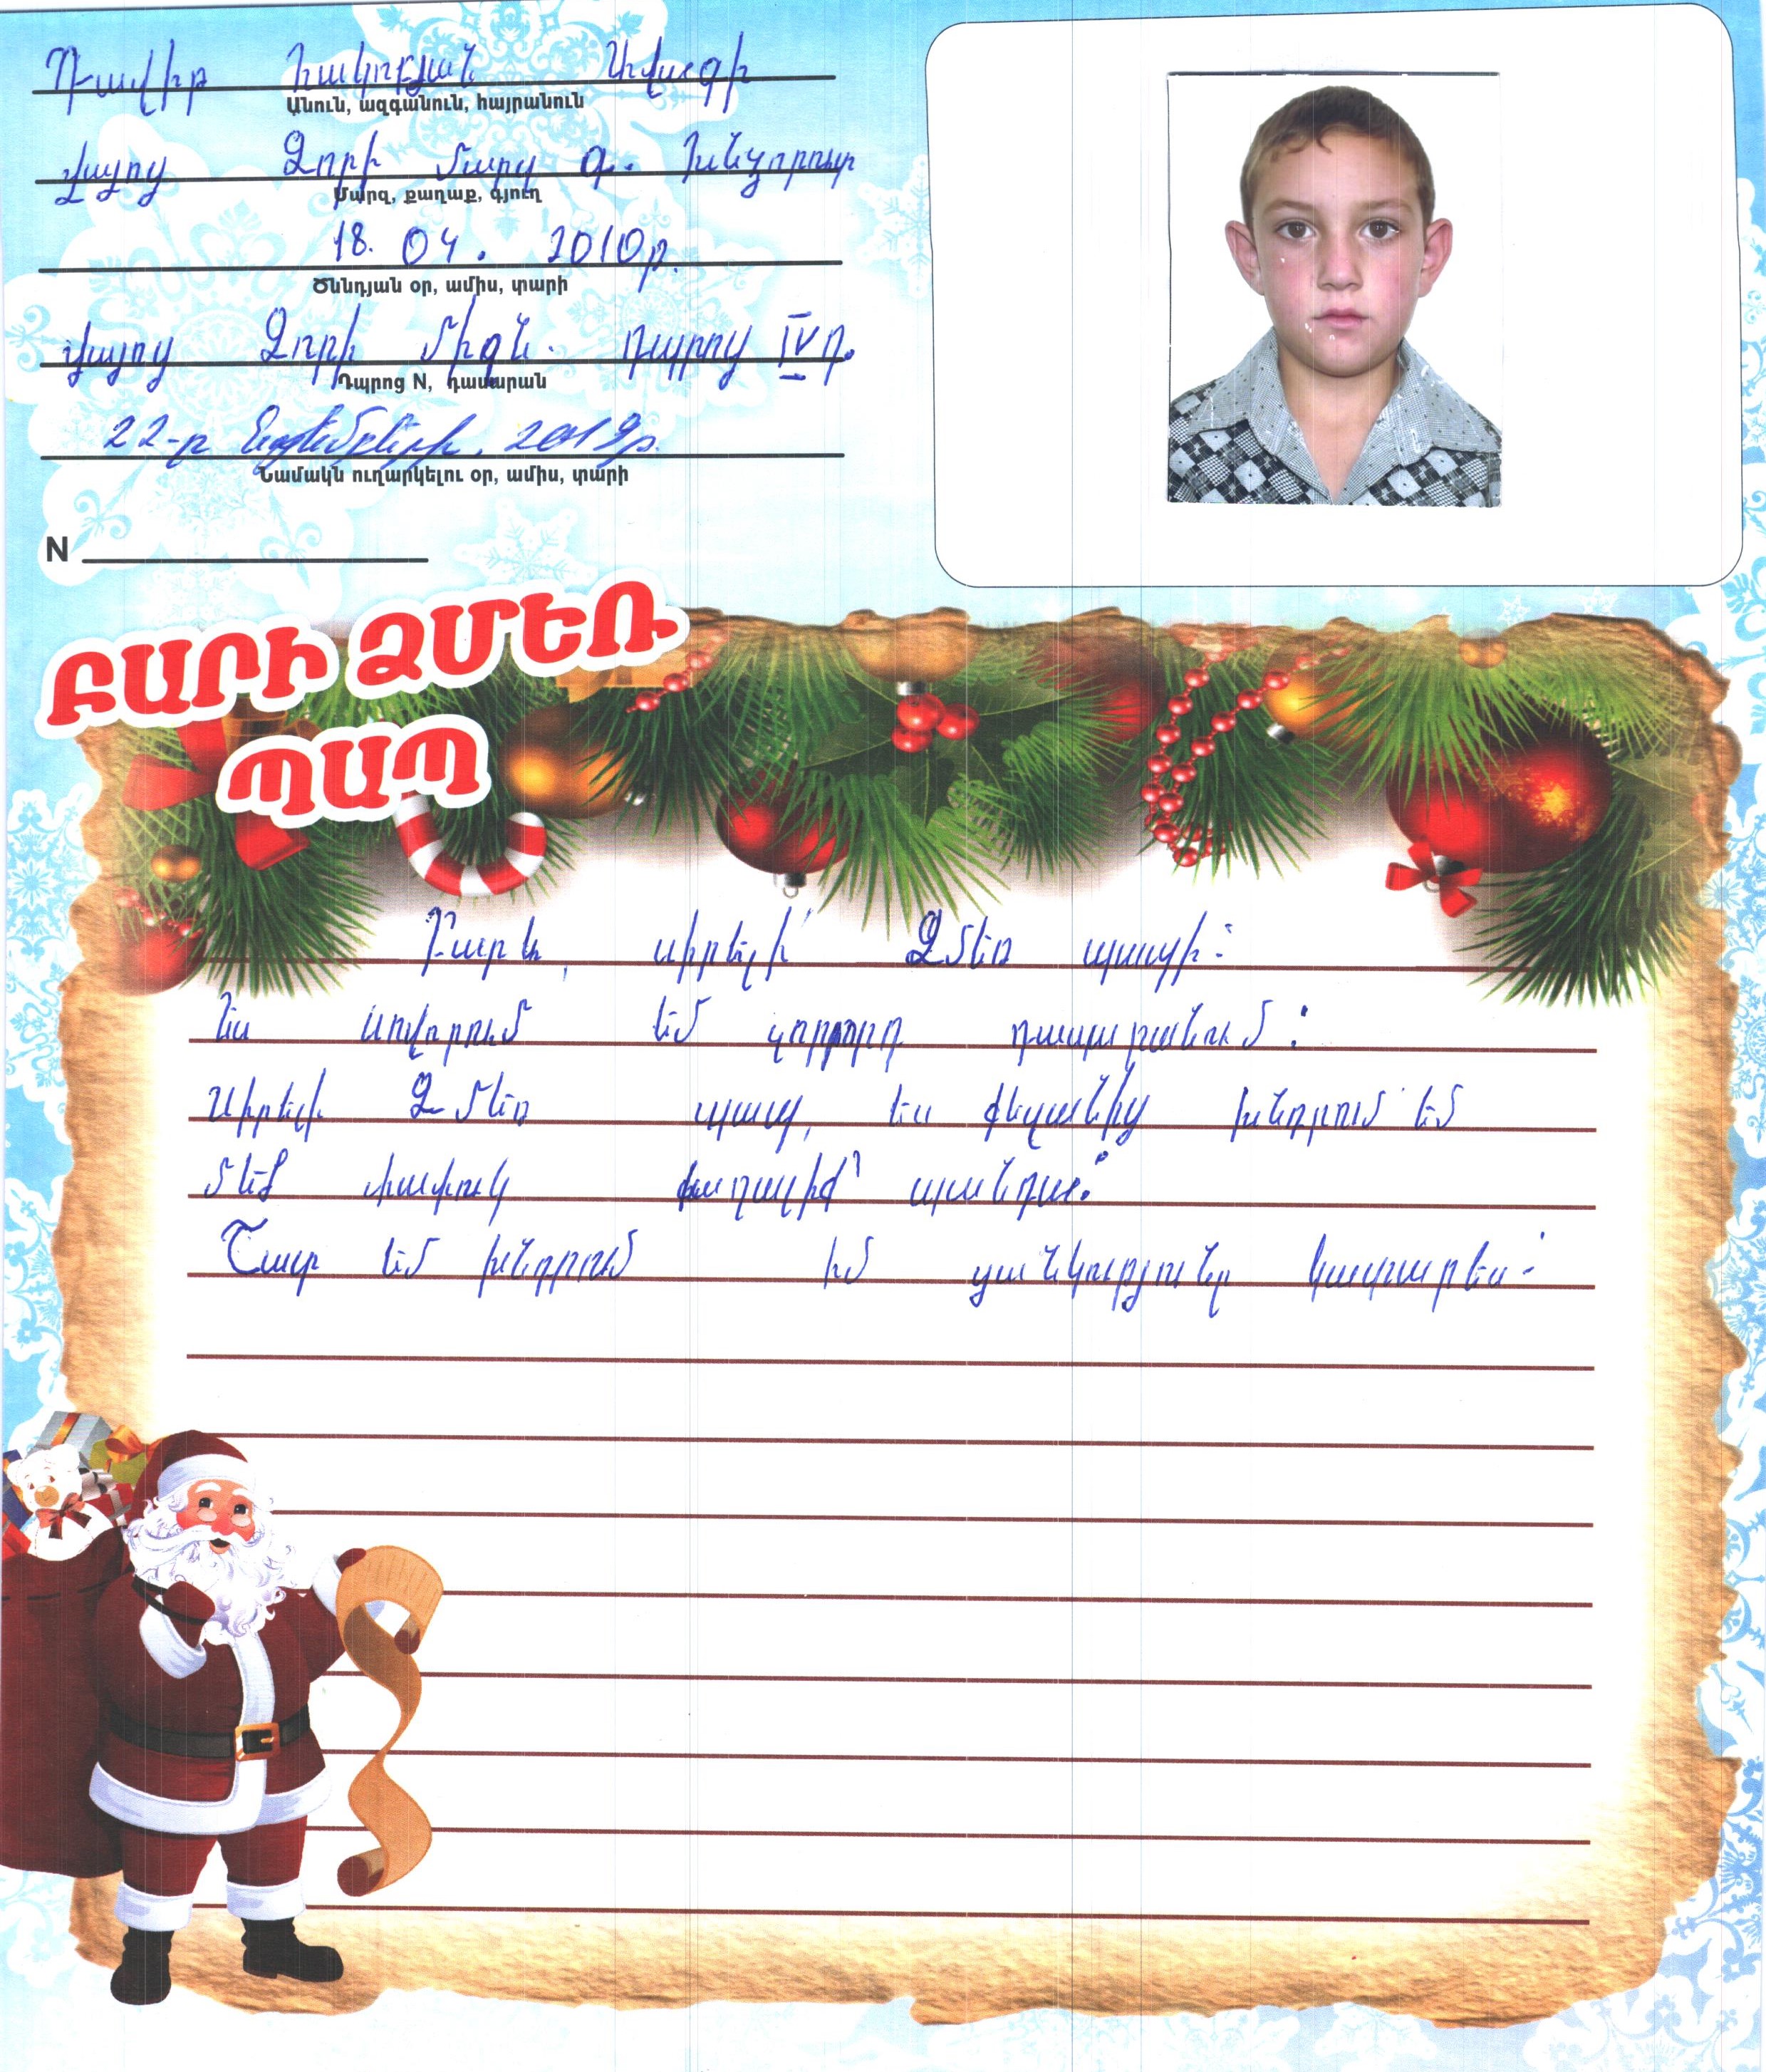 Դավիթ Հակոբյան Ավագի
Անուն, ազգանուն, հայրանուն
Վայոց Ձորի մարզ գ. Խնձորուտ
Մարզ, քաղաք, գյուղ
18. 04. 2010թ.
Ծննդյան օր, ամիս, տարի
Վայոց Ձորի միջն. դպրոց IV դ.
Դպրոց N, դասարան
22-ը նոյեմբերի, 2019թ.
Նամակն ուղարկելու օր, ամիս, տարի
N
ԲԱՐԻ ՁՄԵՌ
ՊԱՊ
Բարև, սիրելի՛ Ձմեռ պապի:
Ես սովորում եմ չորրորդ դասարանում:
Սիրելի Ձմեռ պապ, ես քեզանից խնդրում եմ
մեծ փափուկ խաղալիք՝ պանդա:
Շատ եմ խնդրում իմ ցանկությունը կատարես: